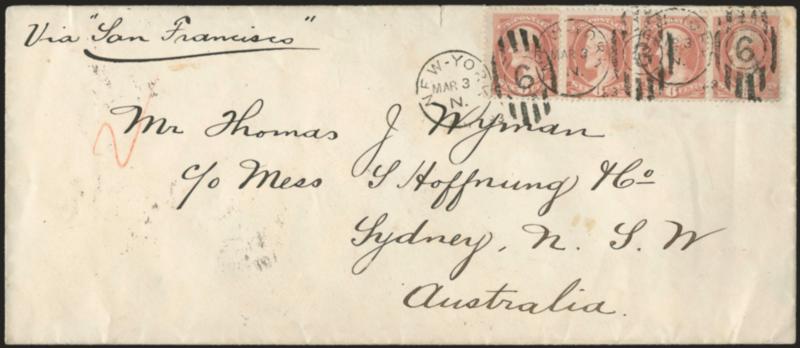 Via "San Francisco"
NEW-YORK
MAR 3
N.
6
MAR 3
N.
6
6
Mr Thomas J Wyman
c/o Mess S Hoffnung & Co
Sydney, N. S. W
Australia.